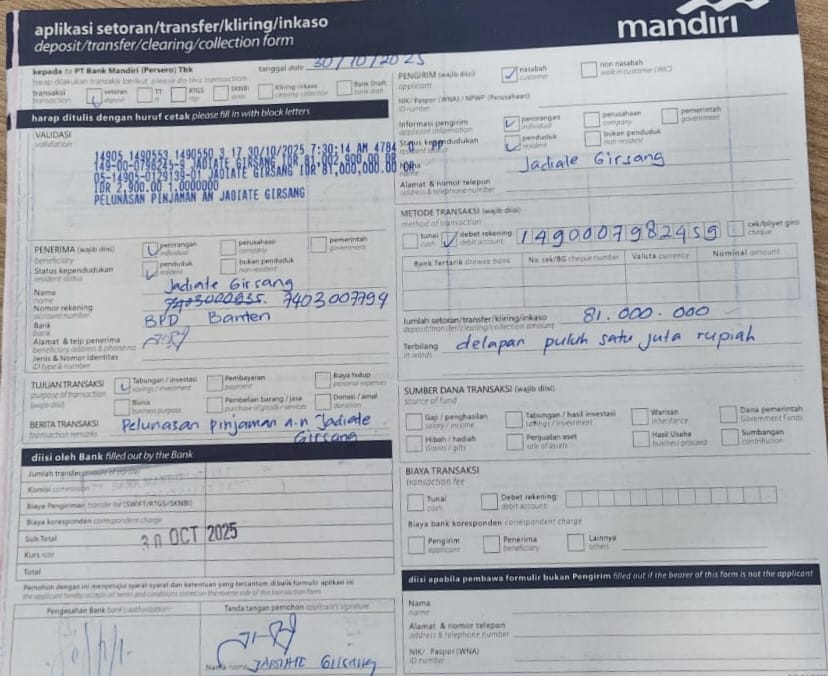 aplikasi setoran/transfer/kliring/inkaso
deposit/transfer/clearing/collection form
mandiri
kepada to PT Bank Mandiri (Persero) Tbk
tanggal date 30/10/2025
harap dilakukan transaksi berikut please do this transaction
transaksi
transaction
setoran
deposit
TT
RTGS
SKNBI
Kliring-inkaso
clearing-collection
Bank Draft
bank draft
harap ditulis dengan huruf cetak please fill in with block letters
VALIDASI
validation
14905 1490553 1490550 3 17 30/10/2025 7:30:14 AM 4784
149-00-0798245-9 JADIATE GIRSANG IDR 81,002,900.00 DB
05-14905-0129139-01 JADIATE GIRSANG IDR 81,000,000.00 CR
IDR 2,900.00 1.0000000
PELUNASAN PINJAMAN AN JADIATE GIRSANG
PENERIMA (wajib diisi)
beneficiary
perorangan
individual
perusahaan
company
pemerintah
government
Status kependudukan
resident status
penduduk
resident
bukan penduduk
non-resident
Nama
name
Jadiate Girsang
Nomor rekening
account number
7403007794
Bank
bank
BPD Banten
Alamat & telp penerima
beneficiary address & phone no
Jenis & Nomor Identitas
ID type & number
TUJUAN TRANSAKSI
purpose of transaction
(wajib diisi)
Tabungan / investasi
savings / investment
Pembayaran
payment
Biaya hidup
personal expenses
Bisnis
business purpose
Pembelian barang / jasa
purchase of goods / services
Donasi / amal
donation
BERITA TRANSAKSI
transaction remarks
Pelunasan pinjaman a.n Jadiate
Girsang
diisi oleh Bank filled out by the Bank
Jumlah transfer
Komisi commission
Biaya Pengiriman (SWIFT/RTGS/SKNBI)
Biaya koresponden correspondent charge
Sub Total
30 OCT 2025
Kurs rate
Total
Pemohon dengan ini menyetujui syarat-syarat dan ketentuan yang tercantum dibalik formulir aplikasi ini
Pengesahan Bank bank's authorization
Tanda tangan pemohon applicant's signature
Nama name JADIATE Girsang
PENGIRIM (wajib diisi)
applicant
nasabah
customer
non nasabah
walk in customer (WIC)
NIK/ Paspor (WNA) / NPWP (Perusahaan)
ID number
Informasi pengirim
applicant information
perorangan
individual
perusahaan
company
pemerintah
government
Status kependudukan
penduduk
resident
bukan penduduk
non-resident
Jadiate Girsang
Alamat & nomor telepon
address & telephone number
METODE TRANSAKSI (wajib diisi)
method of transaction
tunai
cash
debet rekening
debit account
1490007982459
cek/bilyet giro
cheque
Bank Tertarik drawee bank
No. cek/BG cheque number
Valuta currency
Nominal amount
Jumlah setoran/transfer/kliring/inkaso
deposit/transfer/clearing/collection amount
81.000.000
Terbilang
in words
delapan puluh satu juta rupiah
SUMBER DANA TRANSAKSI (wajib diisi)
source of fund
Gaji / penghasilan
salary / income
Tabungan / hasil investasi
savings / investment
Warisan
inheritance
Dana pemerintah
Government Funds
Hibah / hadiah
Grants / gifts
Penjualan aset
sale of assets
Hasil Usaha
business proceed
Sumbangan
contribution
BIAYA TRANSAKSI
transaction fee
Tunai
cash
Debet rekening:
debit account:
Biaya bank koresponden correspondent charge
Pengirim
applicant
Penerima
beneficiary
Lainnya
others
diisi apabila pembawa formulir bukan Pengirim filled out if the bearer of this form is not the applicant
Nama
name
Alamat & nomor telepon
address & telephone number
NIK/ Paspor (WNA)
ID number